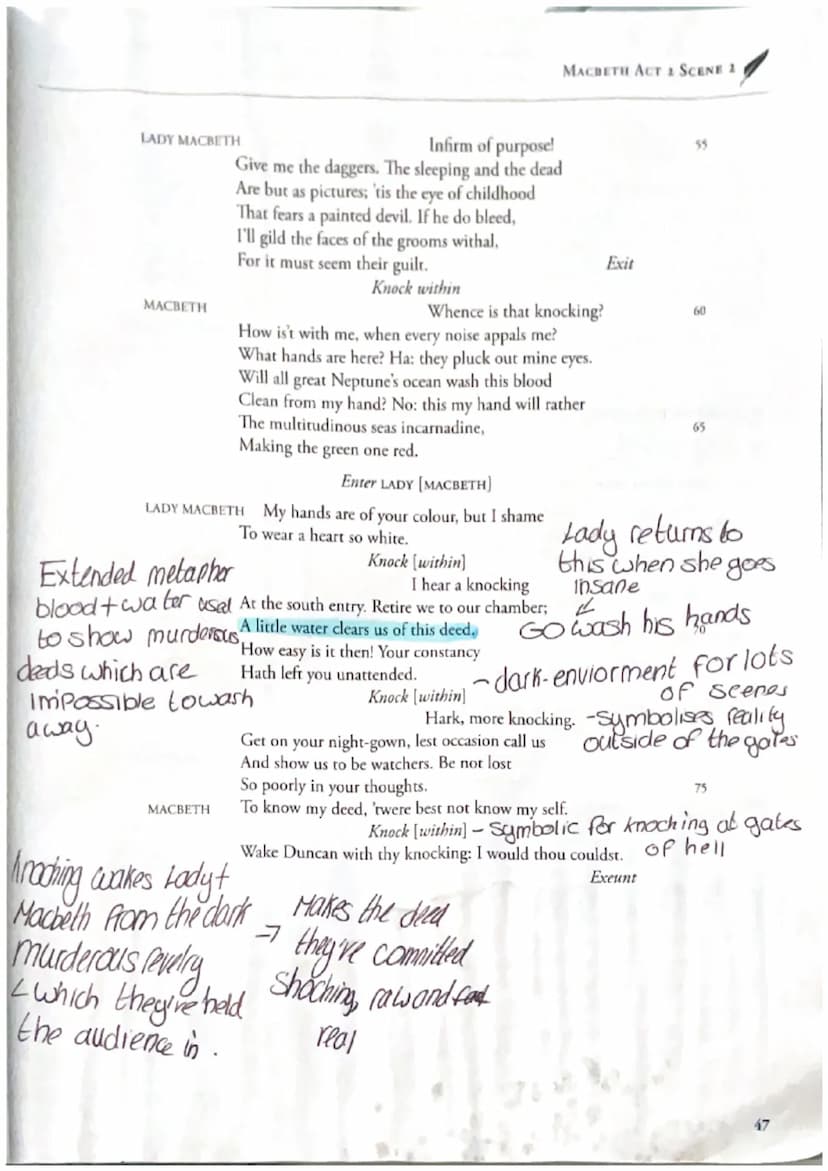 MACBETH ACT 2 SCENE 2
LADY MACBETH Infirm of purpose! 55
Give me the daggers. The sleeping and the dead
Are but as pictures; 'tis the eye of childhood
That fears a painted devil. If he do bleed,
I'll gild the faces of the grooms withal,
For it must seem their guilt. Exit
Knock within
MACBETH Whence is that knocking? 60
How is't with me, when every noise appals me?
What hands are here? Ha: they pluck out mine eyes.
Will all great Neptune's ocean wash this blood
Clean from my hand? No: this my hand will rather
The multitudinous seas incarnadine, 65
Making the green one red.
Enter LADY [MACBETH]
LADY MACBETH My hands are of your colour, but I shame
To wear a heart so white.
Knock [within]
I hear a knocking
At the south entry. Retire we to our chamber;
A little water clears us of this deed.
How easy is it then! Your constancy 70
Hath left you unattended.
Knock [within]
Hark, more knocking.
Get on your night-gown, lest occasion call us
And show us to be watchers. Be not lost
So poorly in your thoughts. 75
MACBETH To know my deed, 'twere best not know my self.
Knock [within]
Wake Duncan with thy knocking: I would thou couldst.
Exeunt
Extended metaphor
blood + water used
to show murderous
deeds which are
impossible to wash
away.
Lady returns to
this when she goes
insane
Go wash his hands
- dark enviorment for lots
of scenes
- symbolises reality
outside of the gates
- symbolic for knocking at gates
of hell
Knocking wakes Lady +
Macbeth from the dark
murderous revelry
which they've held
the audience in.
→ Makes the deed
they've committed
shocking, raw and
real
47